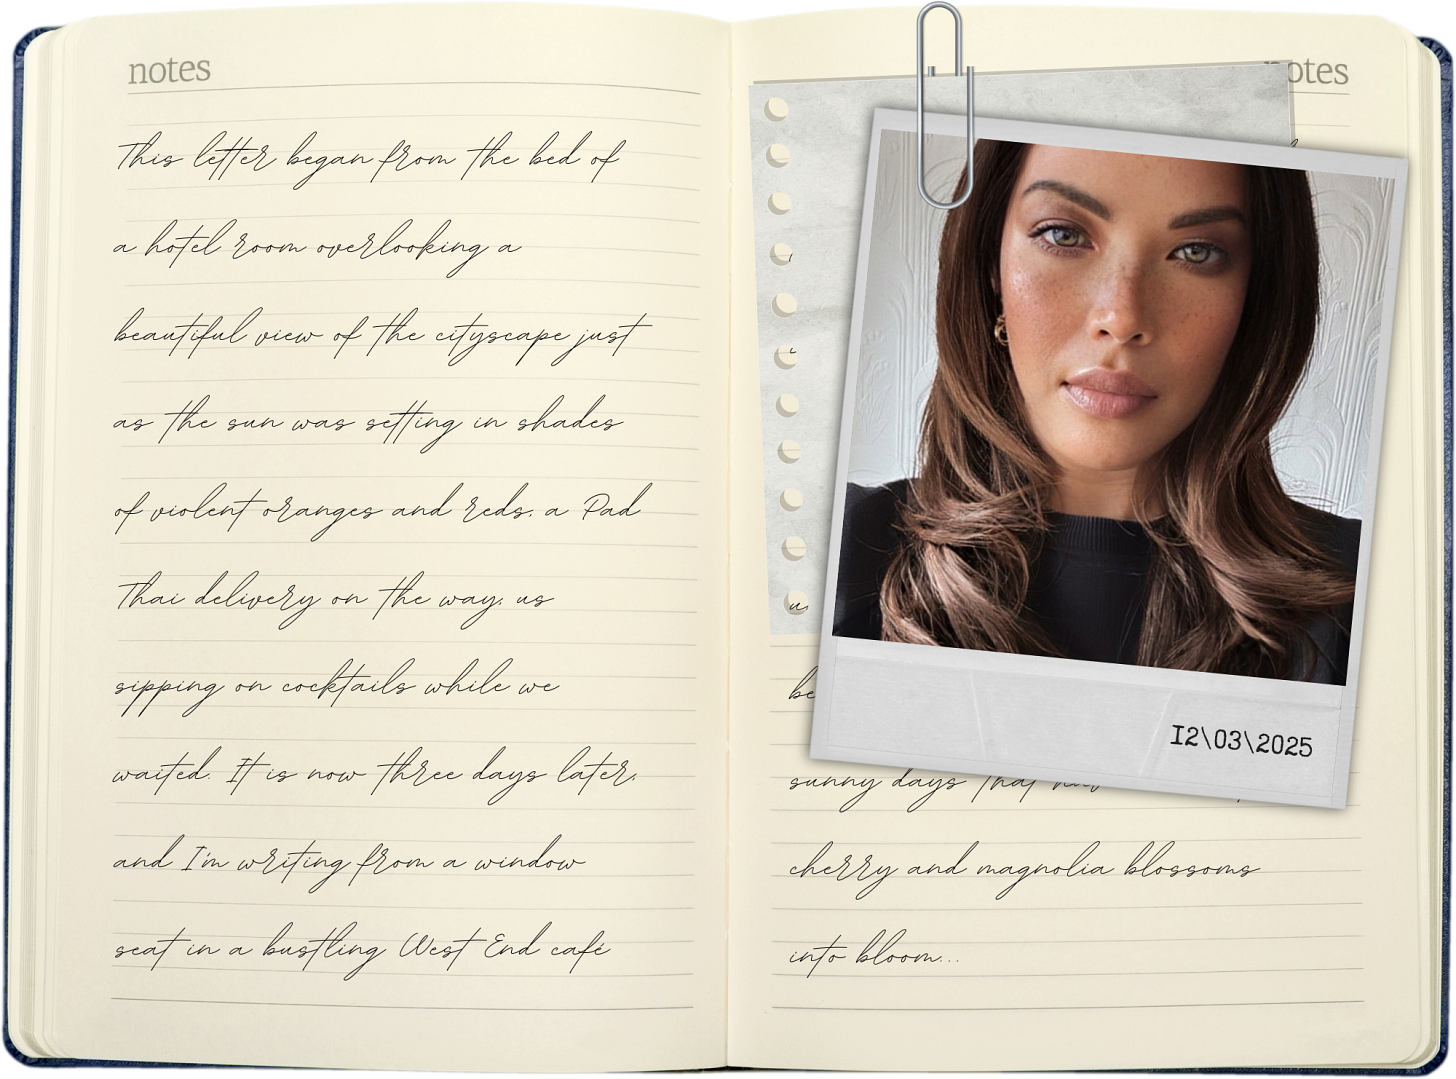 notes
This letter began from the bed of
a hotel room overlooking a
beautiful view of the cityscape just
as the sun was setting in shades
of violent oranges and reds, a Pad
Thai delivery on the way, us
sipping on cocktails while we
waited. It is now three days later,
and I'm writing from a window
seat in a bustling West End café
notes
12\03\2025
sunny days that
cherry and magnolia blossoms
into bloom...